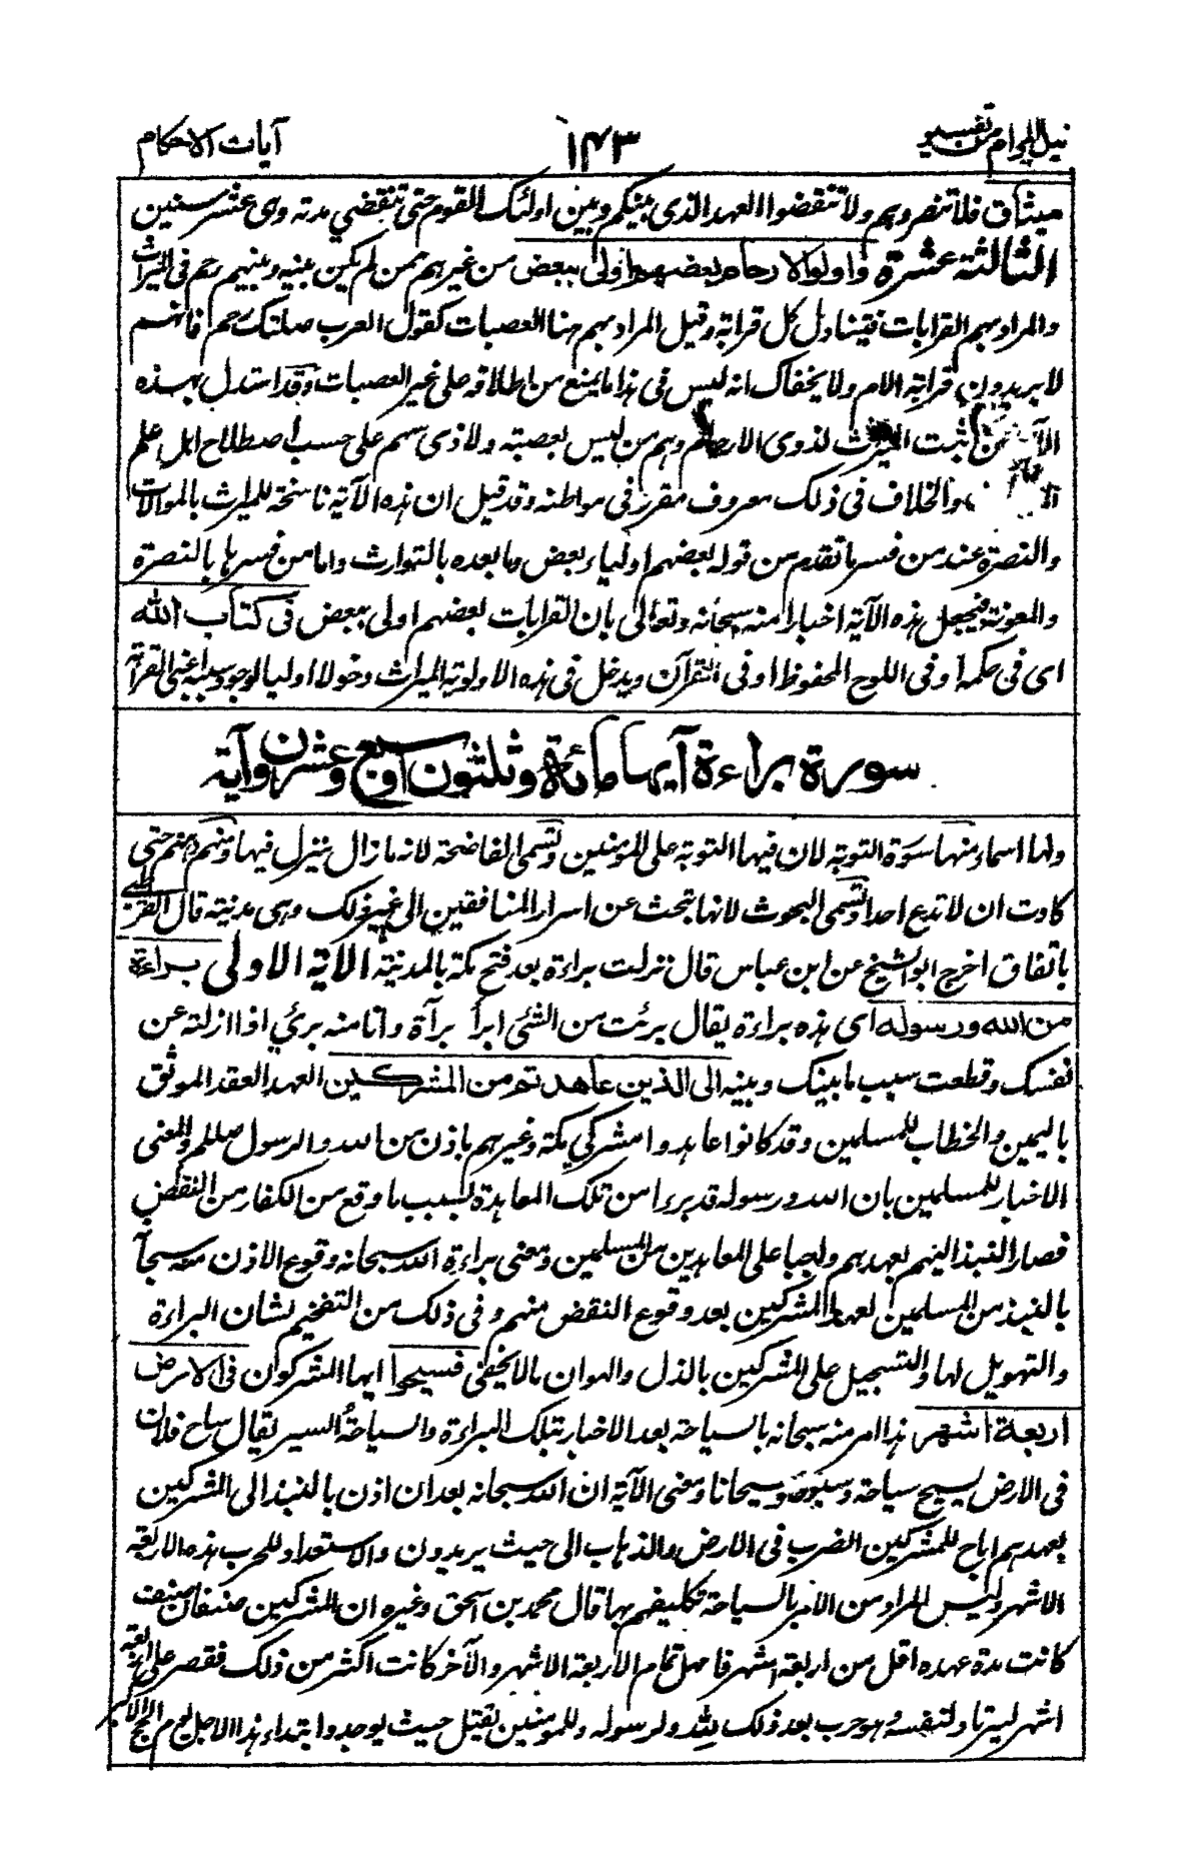 نيل المرام من تفسير ١٤٣ آيات الاحكام
ميثاق فلا تنصروهم ولا تنقضوا العهد الذى بينكم وبين اولئك القوم حتى تنقضي مدته وهى عشر سنين
الثالثة عشرة واولوا الارحام بعضهم اولى ببعض من غيرهم ممن لم يكن بينه وبينهم رحم فى الميراث
والمراد بهم القرابات فيتناول كل قرابة وقيل المراد بهم هنا العصبات كقول العرب صلتك رحم فانهم
لا يريدون قرابة الام ولا يخفاك انه ليس فى هذا ما يمنع من اطلاقه على غير العصبات وقد استدل بهذه
من اثبت الميراث لذوى الارحام وهم من ليس بعصبة ولا ذى سهم على حسب اصطلاح اهل علم
والخلاف فى ذلك معروف مقرر فى مواطنه وقد قيل ان هذه الآية ناسخة للميراث بالموالات
والنصرة عند من فسر ما تقدم من قوله بعضهم اولياء بعض وما بعده بالتوارث واما من فسرها بالنصرة
والمعونة فيجعل هذه الآية اخبارا منه سبحانه وتعالى بان القرابات بعضهم اولى ببعض فى كتاب الله
اى فى حكمه او فى اللوح المحفوظ او فى القرآن ويدخل فى هذه الاولوية الميراث دخولا اوليا لوجود سببه اعنى القرابة
سورة براءة آيها مائة وثلثون او سبع وعشرون آية
ولها اسماء منها سورة التوبة لان فيها التوبة على المؤمنين وتسمى الفاضحة لانه ما زال ينزل فيها ومنهم ومنهم حتى
كادت ان لا تدع احدا وتسمى البحوث لانها تبحث عن اسرار المنافقين الى غير ذلك وهى مدنية قال القرطبى
باتفاق اخرج ابو الشيخ عن ابن عباس قال نزلت براءة بعد فتح مكة بالمدينة الاية الاولى براءة
من الله ورسوله اى هذه براءة يقال برئت من الشئ ابرأ براءة وانا منه برئ اذا ازلته عن
نفسك وقطعت سبب ما بينك وبينه الى الذين عاهدتم من المشركين العهد العقد الموثق
باليمين والخطاب للمسلمين وقد كانوا عاهدوا مشركي مكة وغيرهم باذن من الله والرسول صللم والمعنى
الاخبار للمسلمين بان الله ورسوله قد برءا من تلك المعاهدة بسبب ما وقع من الكفار من النقض
فصار النبذ اليهم بعهدهم واجبا على المعاهدين من المسلمين ومعنى براءة الله سبحانه وقوع الاذن منه سبحانه
بالنبذ من المسلمين لعهد المشركين بعد وقوع النقض منهم وفى ذلك من التفخيم لشان البراءة
والتهويل لها والتسجيل على المشركين بالذل والهوان ما لا يخفى فسيحوا ايها المشركون فى الارض
اربعة اشهر هذا امر منه سبحانه بالسياحة بعد الاخبار بتلك البراءة والسياحة السير يقال ساح فلان
فى الارض يسيح سياحة وسيوحا وسيحانا ومعنى الآية ان الله سبحانه بعد ان اذن بالنبذ الى المشركين
بعهدهم اباح للمشركين الضرب فى الارض والذهاب الى حيث يريدون والاستعداد للحرب هذه الاربعة
الاشهر وليس المراد من الامر بالسياحة تكليفهم بها قال محمد بن اسحق وغيره ان المشركين صنفان صنف
كانت مدة عهده اقل من اربعة اشهر فامهل تمام الاربعة الاشهر والآخر كانت اكثر من ذلك فقصر على اربعة
اشهر ليرتاد لنفسه وهو حرب بعد ذلك لله ولرسوله وللمؤمنين يقتل حيث يوجد وابتداء هذا الاجل يوم الحج الاكبر